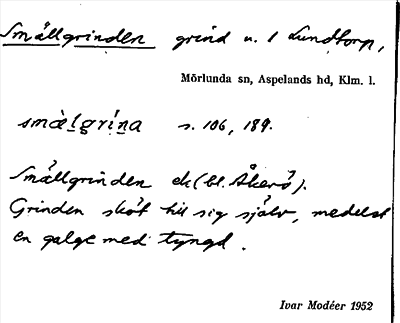 Smällgrinden grind u. 1 Lundtorp,
Mörlunda sn, Aspelands hd, Klm. l.
smæ̀lgrín̥a s. 106, 189.
Smällgrinden ek (bl. Åkerö).
Grinden sköt till sig själv, medelst
en galge med tyngd.
Ivar Modéer 1952